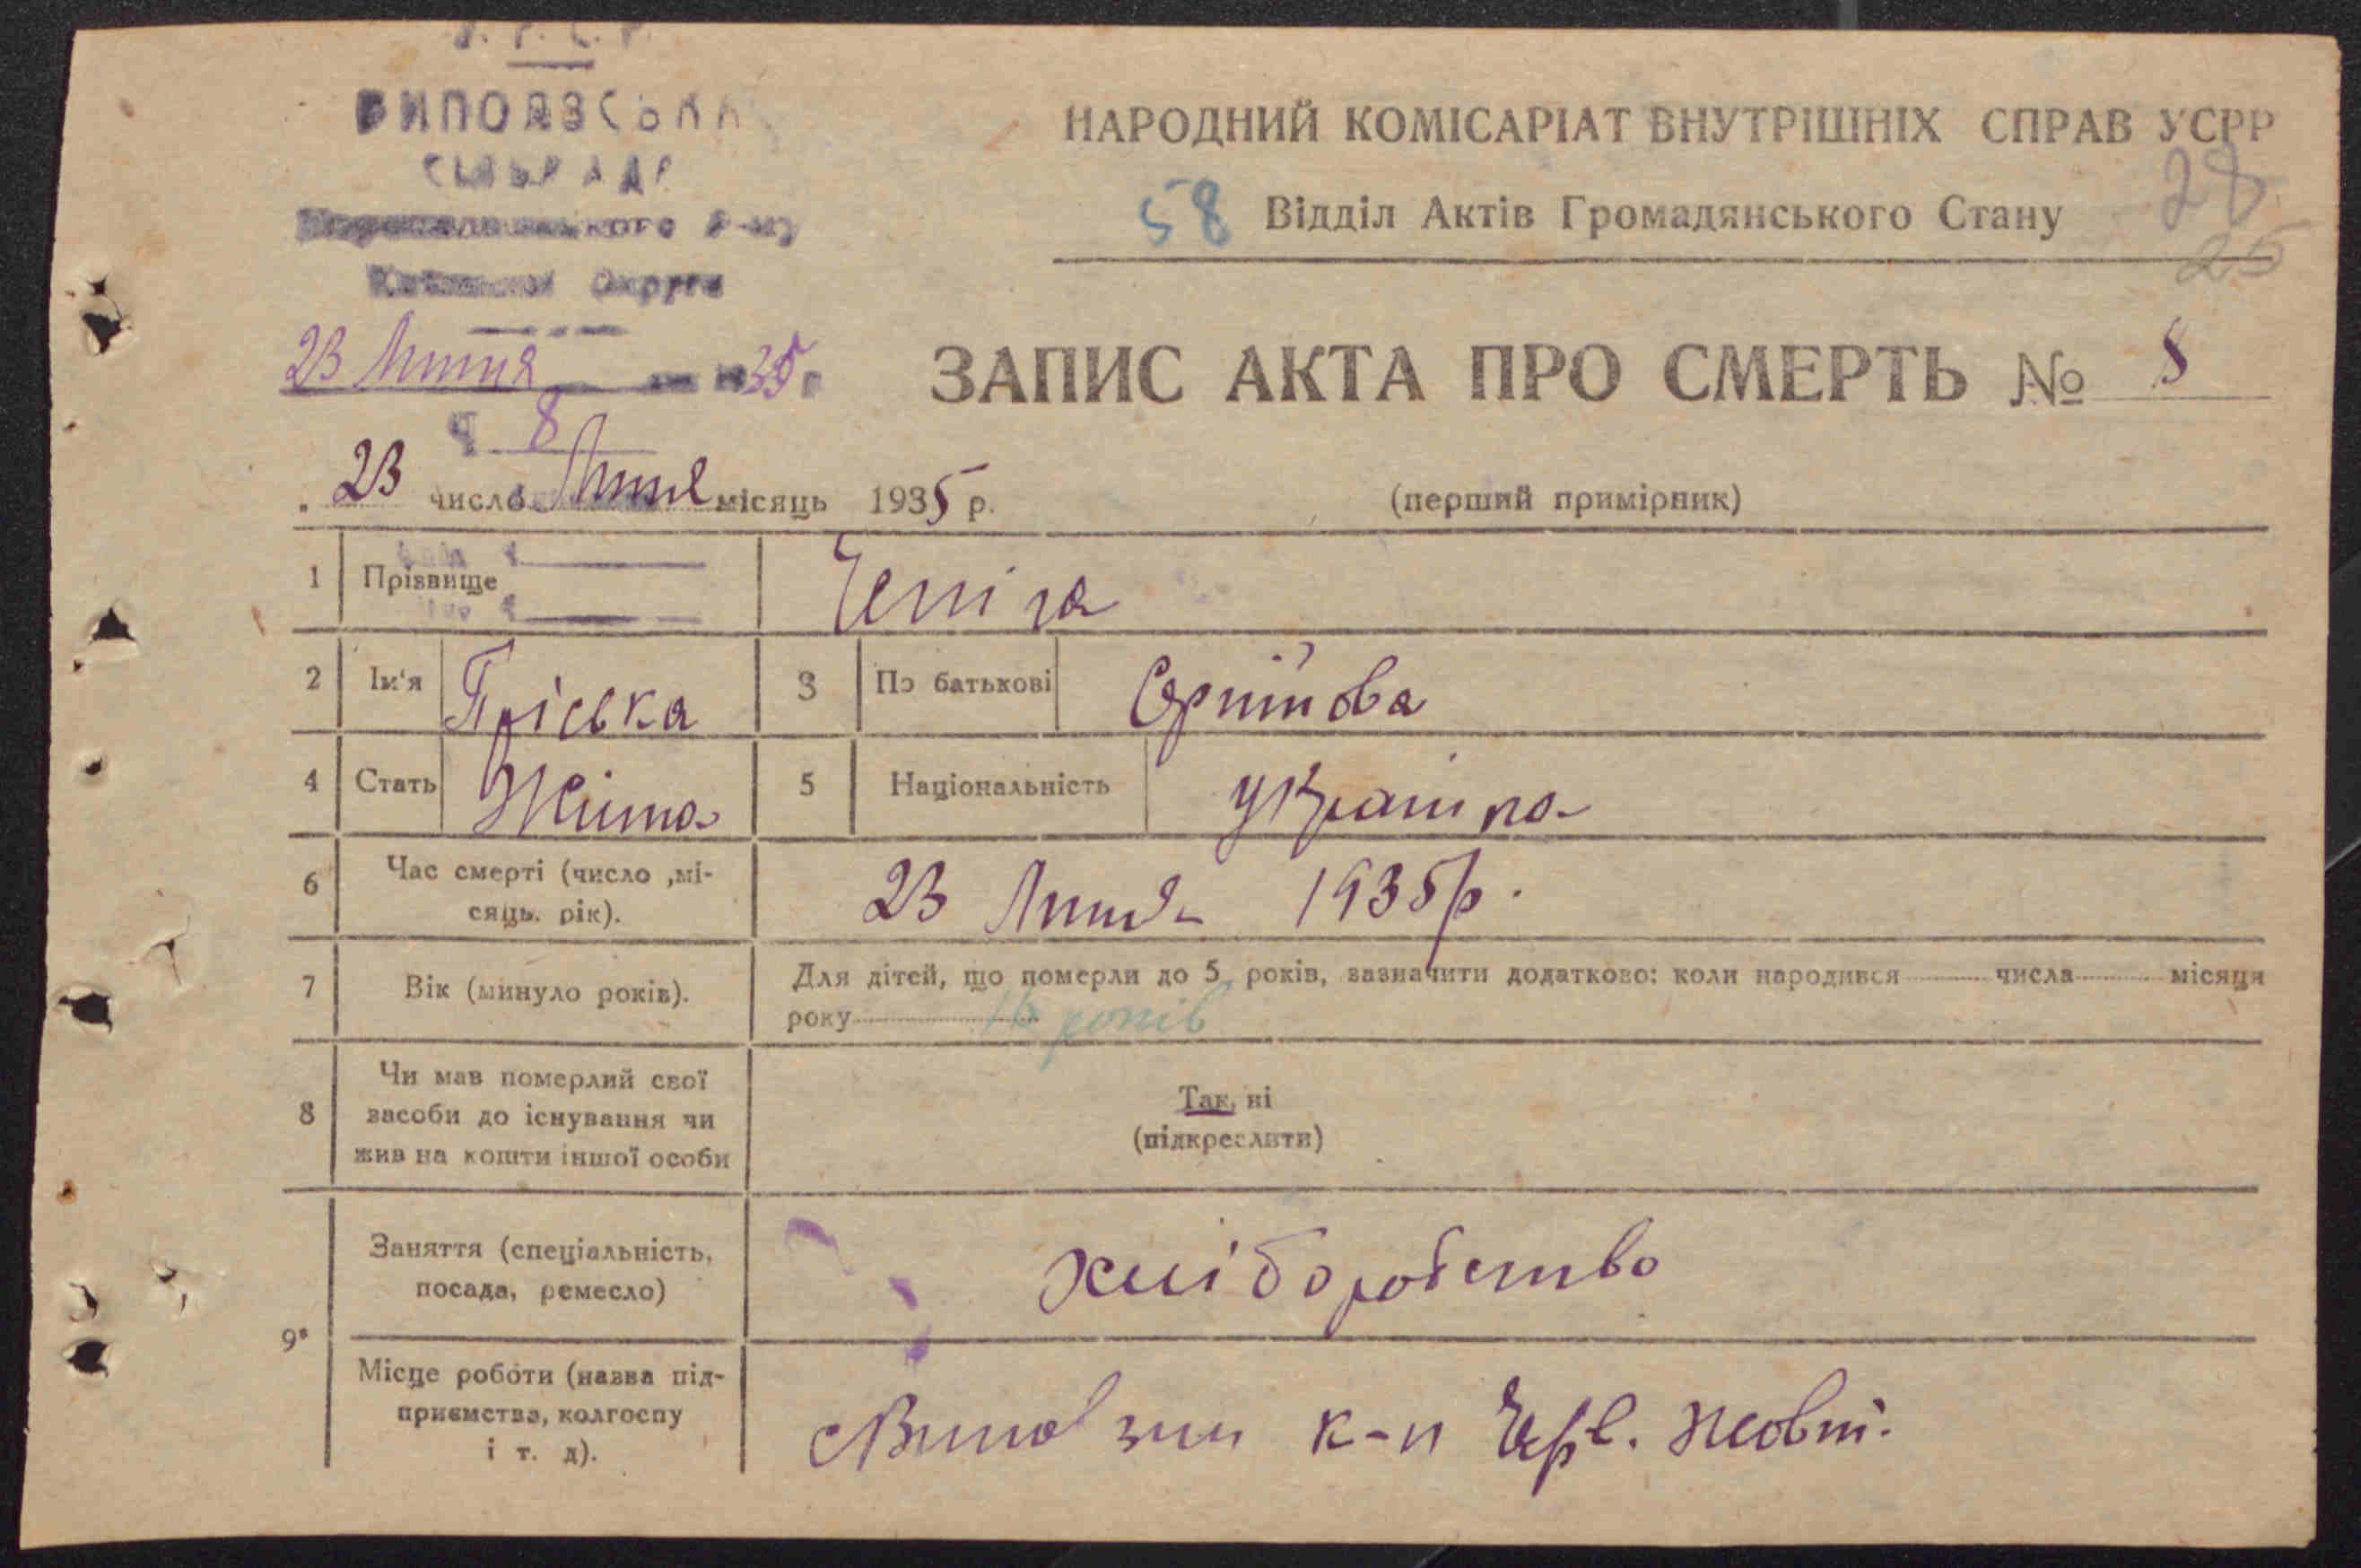 У. Р. С. Р.
ВИПОЛЗСЬКА
СІЛЬРАДА
Округи
23 Липня 1935 р
Ч 8
НАРОДНИЙ КОМІСАРІАТ ВНУТРІШНІХ СПРАВ УСРР
58 Відділ Актів Громадянського Стану 28
25
ЗАПИС АКТА ПРО СМЕРТЬ № 8
23 число Липня місяць 1935 р.
(перший примірник)
1 Прізвище Чепіга
2 Ім'я Пріська 3 По батькові
4 Стать Жіноча 5 Національність Українка
6 Час смерті (число ,мі-
сяць. рік). 23 Липня 1935 р.
7 Вік (минуло років). Для дітей, що померли до 5 років, зазначити додатково: коли народився числа місяця
року 16 років
8 Чи мав померлий свої
засоби до існування чи
жив на кошти іншої особи
Так, ні
(підкреслити)
9*
Заняття (спеціальність,
посада, ремесло) хліборобство
Місце роботи (назва під-
приємства, колгоспу
і т. д). к-п Черв. Жовт.